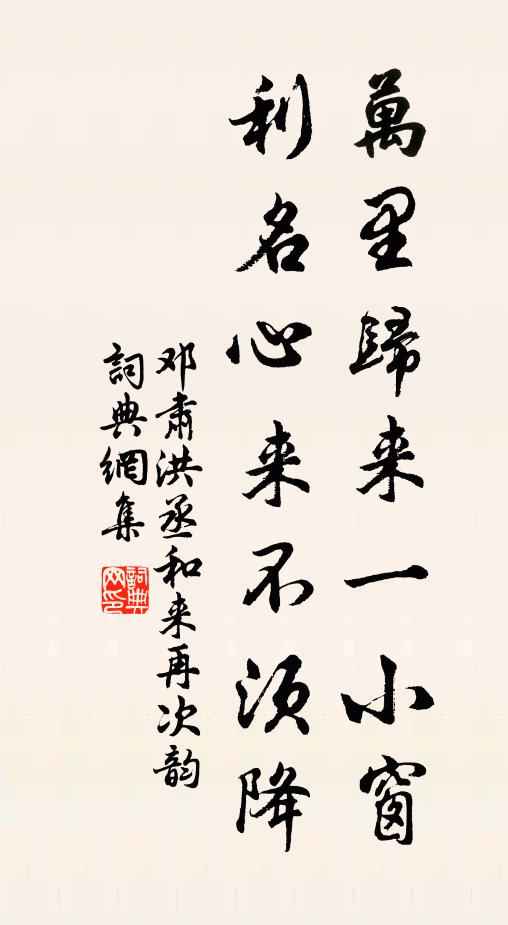 萬里歸来一小窗
利名心来不須降
邓肅洪丞和来再次韵
詞典網集
詞典網印